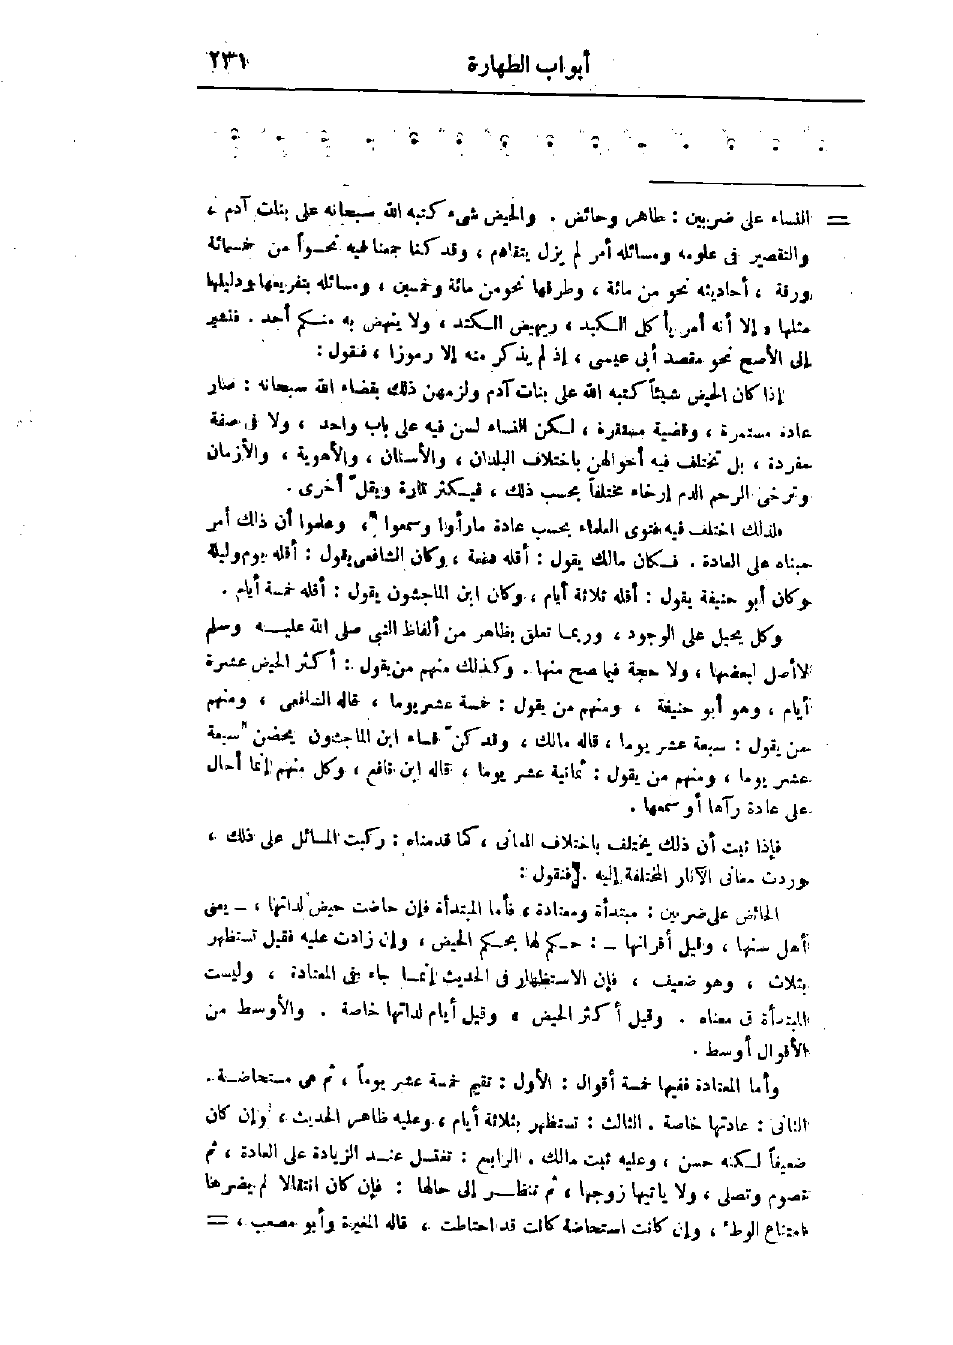 أبواب الطهارة ٢٣١
= النساء على ضربين : طاهر وحائض . والحيض شىء كتبه الله سبحانه على بنات آدم ،
والتقصير فى علومه ومسائله أمر لم يزل يتفاهم ، وقد كنا جمعنا فيه نحواً من خمسمائة
ورقة ، أحاديثه نحو من مائة ، وطرقها نحو من مائة وخمسين ، ومسائله بتفريعها ودليلها
مثلها ، إلا أنه أمر يأكل الكبد ، ويهيض الكتد ، ولا ينهض به منكم أحد . فنشير
إلى الأصح نحو مقصد أبى عيسى ، إذ لم يذكر منه إلا رموزا ، فنقول :
إذا كان الحيض شيئاً كتبه الله على بنات آدم ولزمهن ذلك بقضاء الله سبحانه : صار
عادة مستمرة ، وقضية مستقرة ، لكن النساء لسن فيه على باب واحد ، ولا فى صفة
مفردة ، بل تختلف فيه أحوالهن باختلاف البلدان ، والأسنان ، والأهوية ، والأزمان
وترخى الرحم الدم إرخاء مختلفاً بحسب ذلك ، فيكثر تارة ويقل أخرى .
فلذلك اختلف فيه فتوى العلماء بحسب عادة مارأوا وسمعوا ، وعلموا أن ذلك أمر
مبناه على العادة . فكان مالك يقول : أقله دفعة ، وكان الشافعى يقول : أقله يوم وليلة
وكان أبو حنيفة يقول : أقله ثلاثة أيام ، وكان ابن الماجشون يقول : أقله خمسة أيام .
وكل يحيل على الوجود ، وربما تعلق بظاهر من ألفاظ النبى صلى الله عليه وسلم
لاأصل لبعضها ، ولا حجة فيما صح منها . وكذلك منهم من يقول : أكثر الحيض عشرة
أيام ، وهو أبو حنيفة ، ومنهم من يقول : خمسة عشر يوما ، قاله الشافعى ، ومنهم
من يقول : سبعة عشر يوما ، قاله مالك ، وقد كن نساء ابن الماجشون يحضن سبعة
عشر يوما ، ومنهم من يقول : ثمانية عشر يوما ، قاله ابن نافع ، وكل منهم إنما أحال
على عادة رآها أو سمعها .
فإذا ثبت أن ذلك يختلف باختلاف المعانى ، كما قدمناه : ركبت المسائل على ذلك ،
وردت معانى الآثار المختلفة إليه . فنقول :
الحائض على ضربين : مبتدأة ومعتادة ، فأما المبتدأة فإن حاضت حيض لداتها ، ــ يعنى
أهل سنها ، وقيل أقرانها ــ : حكم لها بحكم الحيض ، وإن زادت عليه فقيل تستظهر
بثلاث ، وهو ضعيف ، فإن الاستظهار فى الحديث إنما جاء فى المعتادة ، وليست
المبتدأة فى معناه . وقيل أكثر الحيض ، وقيل أيام لداتها خاصة . والأوسط من
الأقوال أوسط .
وأما المعتادة ففيها خمسة أقوال : الأول : تقيم خمسة عشر يوماً ، ثم هى مستحاضة .
الثانى : عادتها خاصة . الثالث : تستظهر بثلاثة أيام ، وعليه ظاهر الحديث ، وإن كان
ضعيفاً لكنه حسن ، وعليه ثبت مالك . الرابع : تغتسل عند الزيادة على العادة ، ثم
تصوم وتصلى ، ولا يأتيها زوجها ، ثم تنظر إلى حالها : فإن كان انتقالا لم يضرها
امتناع الوطء ، وإن كانت استحاضة كانت قد احتاطت ، قاله المغيرة وأبو مصعب ، =